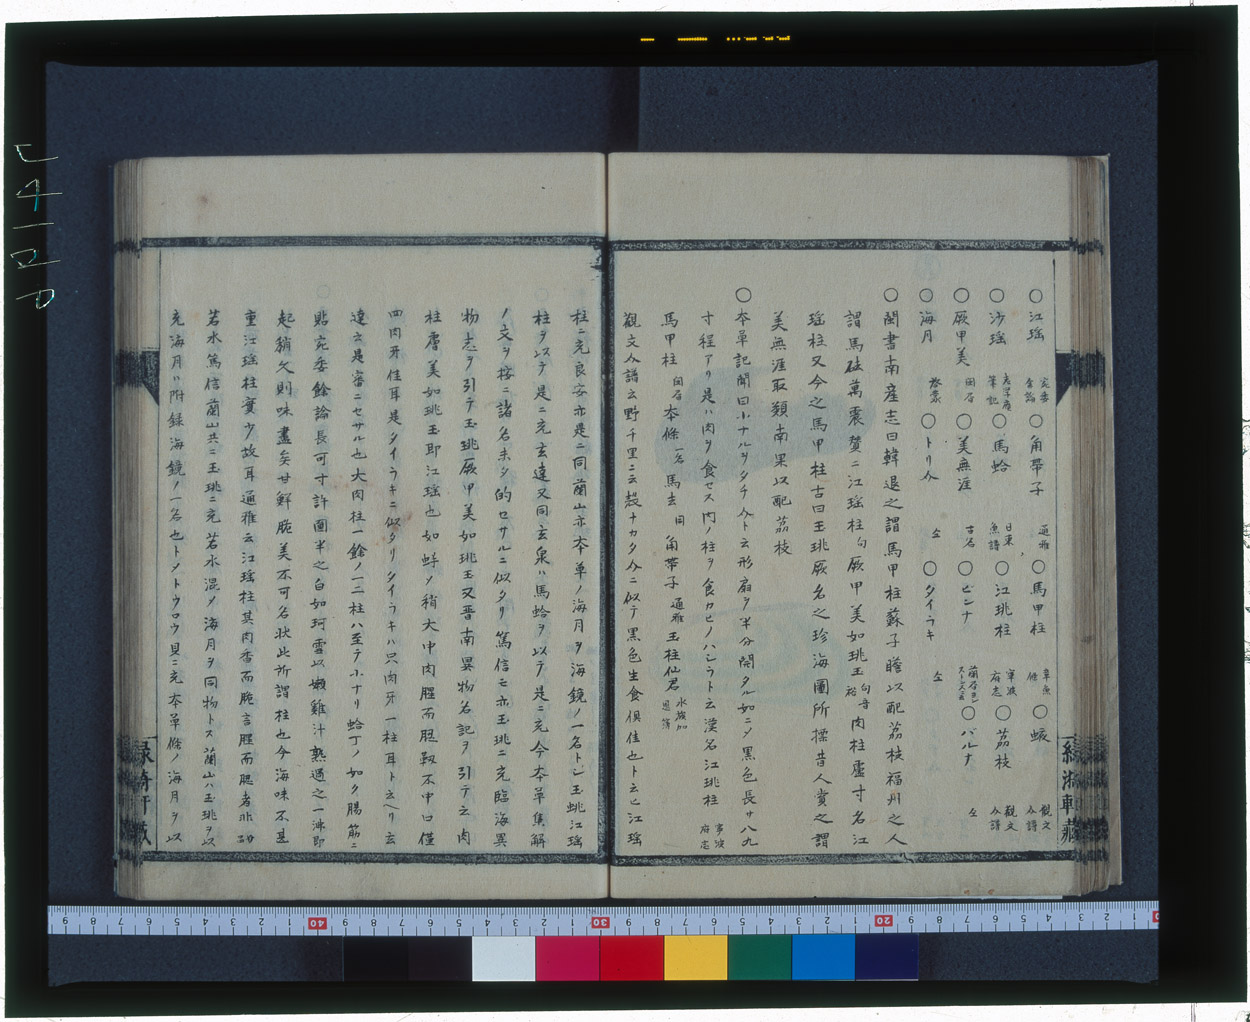 ○江瑶 宛委余論 ○角帯子 通雅 ○馬甲柱 章魚條 ○蝛 観文介譜
○沙瑶 老学庵筆記 ○馬蛤 日東魚譜 ○江珧柱 寧波府志 ○荔枝 観文介譜
○厥甲美 同名 ○美無涯 古名 ○ピンナ ○パルナ 仝
○海月 啓蒙 ○トリ介 仝 ○タイラキ 仝
○閩書南産志曰韓退之謂馬甲柱蘇子瞻以配荔枝福州之人
謂馬砝萬震賛ニ江瑶柱句厥甲美如珧玉 肉柱虚寸名江
瑶柱又今之馬甲柱古曰玉珧厥名之珍海圖所標昔人賞之謂
美無涯取類南果以配荔枝
○本草記聞曰小ナルヲタチ介ト云形扇ヲ半分開タル如ニメ黒色長サ八九
寸程アリ是ハ肉ヲ食セス肉ノ柱ヲ食カヒノハシラト云漢名江珧柱 寧波府志
馬甲柱 同名 本條一名 馬去 同 角帯子 通雅 玉柱仙君 水族加恩簿
観文介譜云野千里ニ云殻ナカタ介ニ似テ黒色生食倶佳也ト云已江瑶
柱ニ充良安亦是ニ同蘭山亦本草ノ海月ヲ海鏡ノ一名トシ玉珧江瑶
柱ヲ以テ是ニ充玄達又同玄泉ハ馬蛤ヲ以テ是ニ充今本草集解
ノ文ヲ按ニ諸名未タ的セサルニ似タリ篤信モ亦玉珧ニ充臨海異
物志ヲ引テ玉珧厥甲美如珧玉又晋南異物名記ヲ引テ云肉
柱膚美如珧玉即江瑶也如蚌メ稍大中肉腥而䏰靱不中口僅
四肉牙佳耳是タイラキニ似タリタイラキハ只肉牙一柱耳ト云ヘリ玄
達云是審ニセサル也大肉柱一餘ノ一二柱ハ至テ小ナリ蛤丁ノ如ク腸筋ニ
貼宛委餘論長可寸許圍半之白如珂雪以嫩雞汁熟過之一沸即
起稍久則味盡矣甘鮮脆美不可名状此所謂柱也今海味不甚
重江瑶柱實少故耳通雅云江瑶柱其肉香而脆言腥而䏰者非
若水篤信蘭山共ニ玉珧ニ充若水混メ海月ヲ同物トス蘭山ハ玉珧ヲ以
充海月ハ附録海鏡ノ一名也トメトウロウ貝ニ充本草條ノ海月ヲ以
緑漪軒蔵
緑漪軒蔵